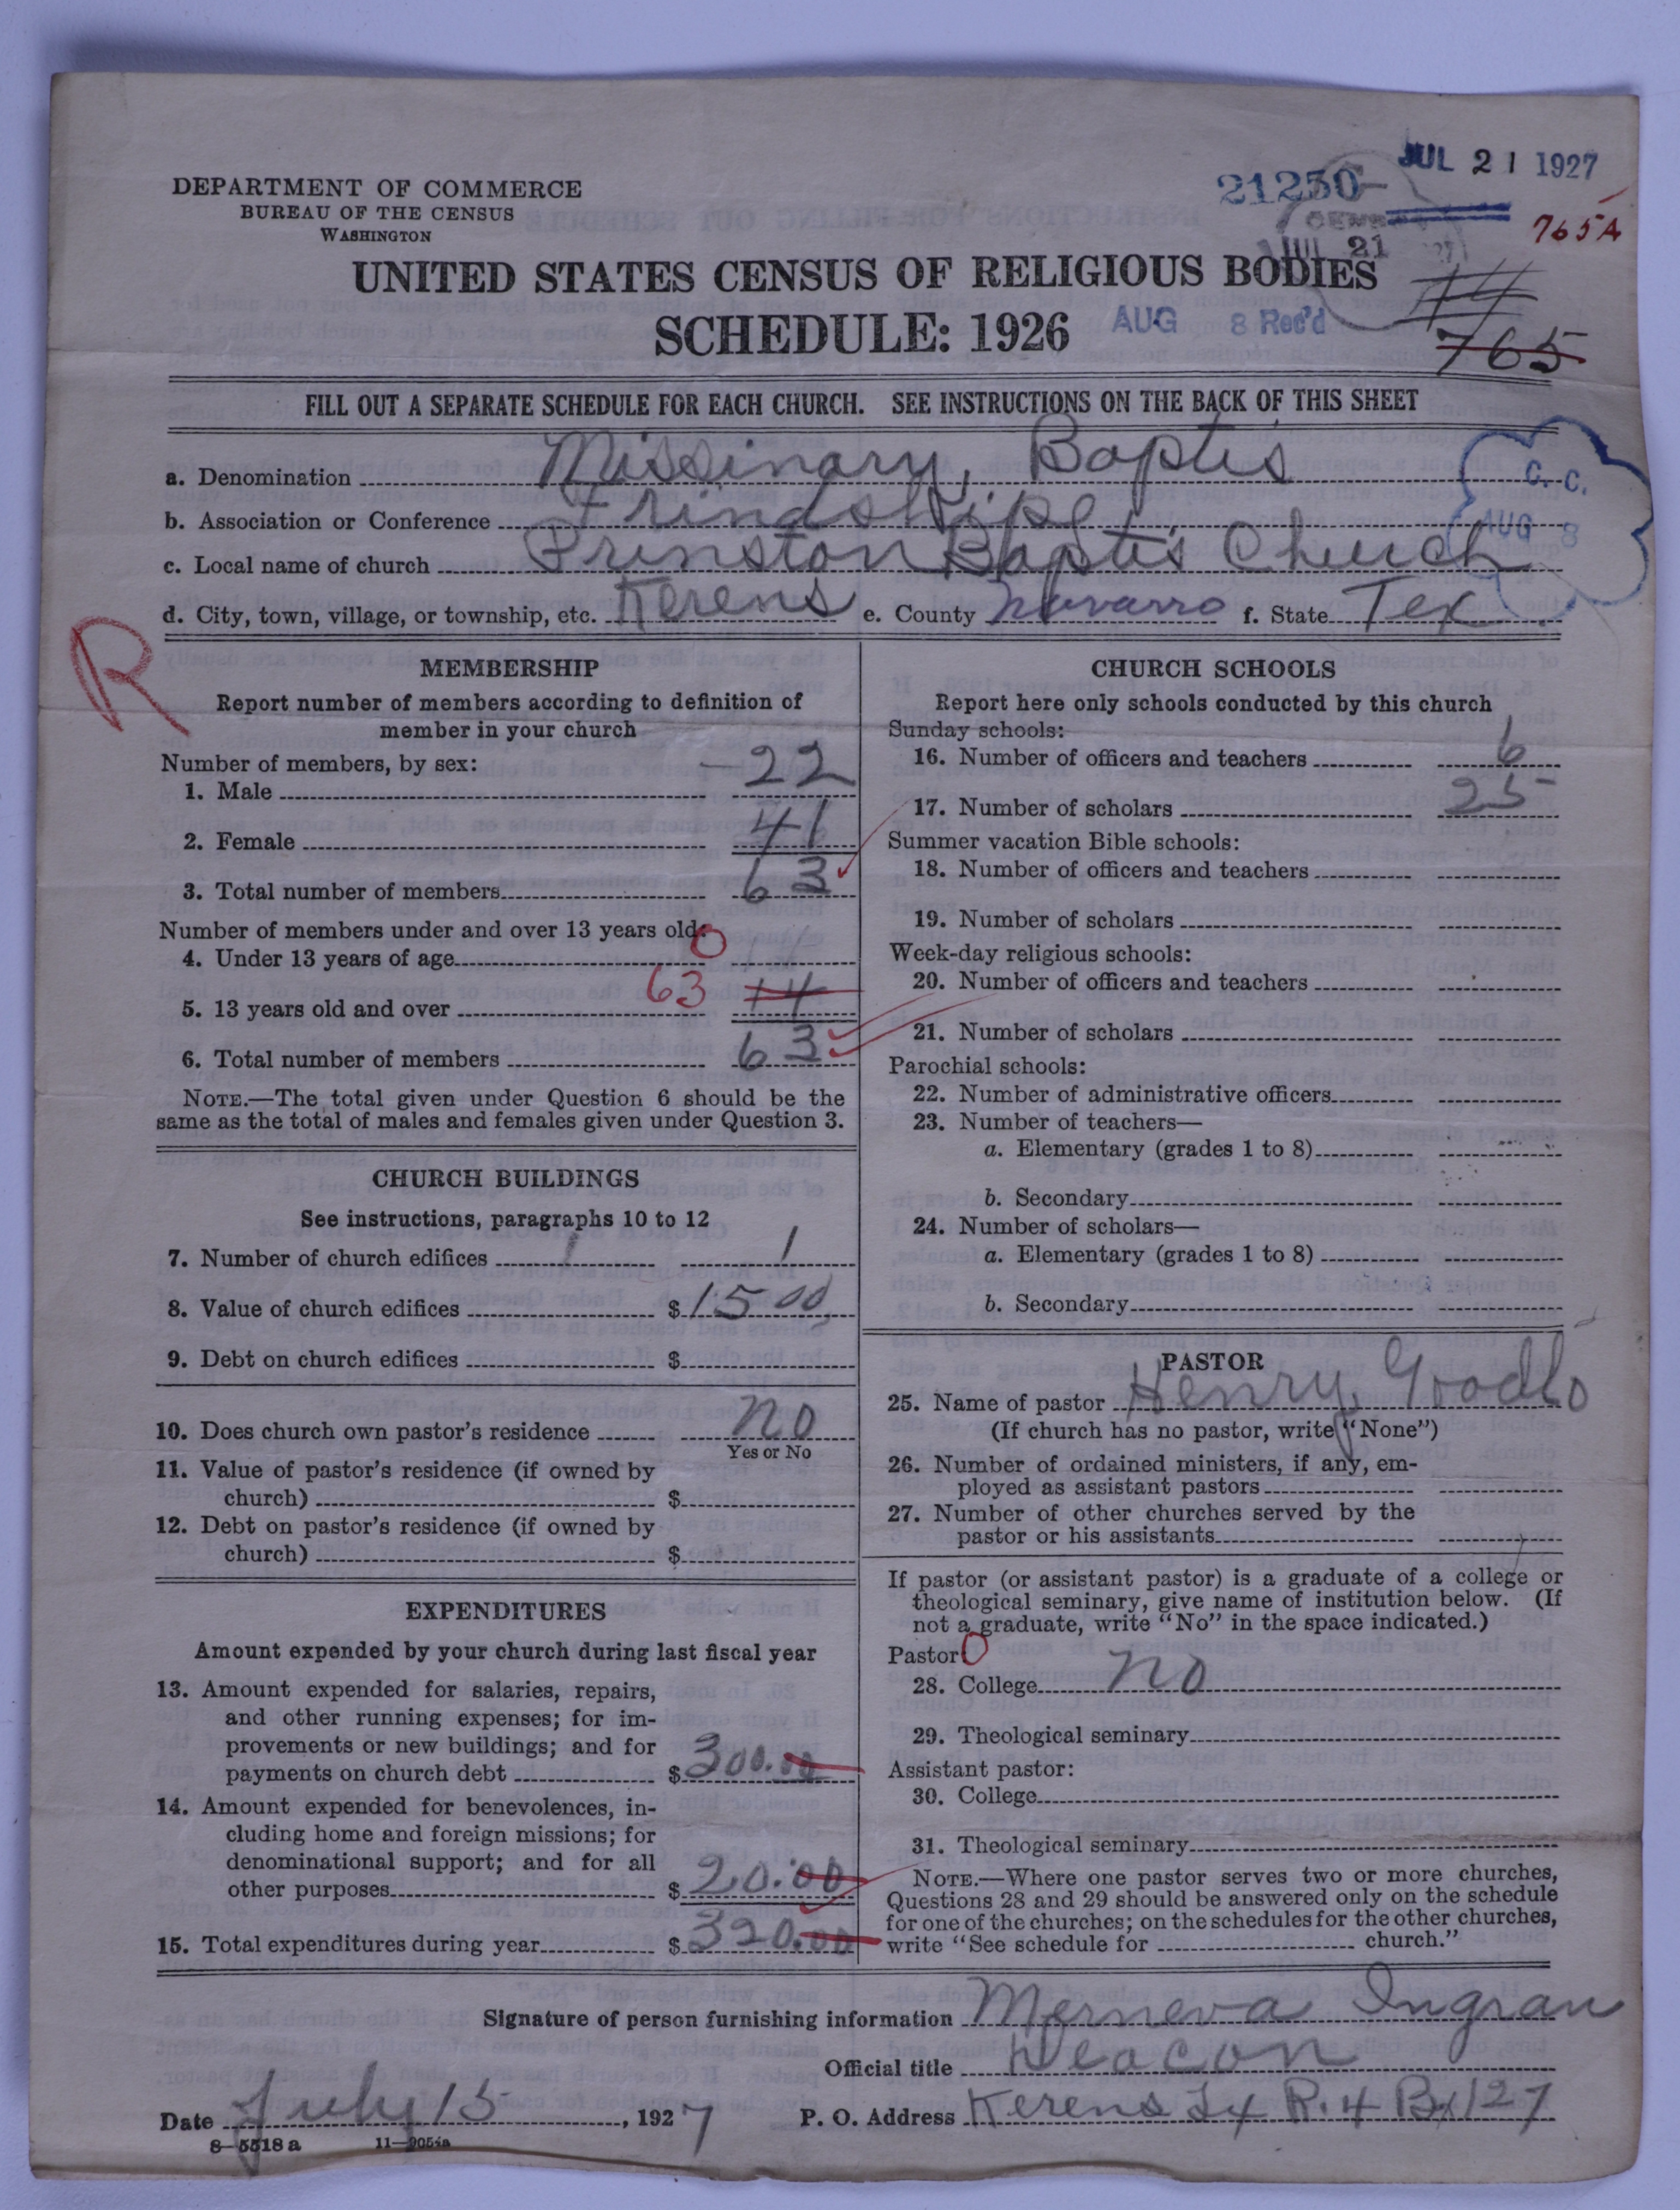 DEPARTMENT OF COMMERCE
BUREAU OF THE CENSUS
WASHINGTON
21250
JUL 21 1927
JUL 21
765A
UNITED STATES CENSUS OF RELIGIOUS BODIES
SCHEDULE: 1926
AUG 8 Rec'd
765
FILL OUT A SEPARATE SCHEDULE FOR EACH CHURCH. SEE INSTRUCTIONS ON THE BACK OF THIS SHEET
a. Denomination Missinary, Baptis
b. Association or Conference Frindshipe
c. Local name of church Prinston Baptis Church
C. C.
AUG 8
d. City, town, village, or township, etc. Kerens e. County Navarro f. State Tex
R
MEMBERSHIP
Report number of members according to definition of
member in your church
Number of members, by sex:
1. Male 22
2. Female 41
3. Total number of members 63
Number of members under and over 13 years old:
4. Under 13 years of age 0
5. 13 years old and over 63 14
6. Total number of members 63
NOTE.—The total given under Question 6 should be the
same as the total of males and females given under Question 3.
CHURCH BUILDINGS
See instructions, paragraphs 10 to 12
7. Number of church edifices 1 1
8. Value of church edifices $ 1500
9. Debt on church edifices $
10. Does church own pastor's residence no
Yes or No
11. Value of pastor's residence (if owned by
church) $
12. Debt on pastor's residence (if owned by
church) $
EXPENDITURES
Amount expended by your church during last fiscal year
13. Amount expended for salaries, repairs,
and other running expenses; for im-
provements or new buildings; and for
payments on church debt $ 300.00
14. Amount expended for benevolences, in-
cluding home and foreign missions; for
denominational support; and for all
other purposes $ 20.00
15. Total expenditures during year $ 320.00
CHURCH SCHOOLS
Report here only schools conducted by this church
Sunday schools:
16. Number of officers and teachers 6
17. Number of scholars 25
Summer vacation Bible schools:
18. Number of officers and teachers
19. Number of scholars
Week-day religious schools:
20. Number of officers and teachers
21. Number of scholars
Parochial schools:
22. Number of administrative officers
23. Number of teachers—
a. Elementary (grades 1 to 8)
b. Secondary
24. Number of scholars—
a. Elementary (grades 1 to 8)
b. Secondary
PASTOR
25. Name of pastor Henry Goodlo
(If church has no pastor, write "None")
26. Number of ordained ministers, if any, em-
ployed as assistant pastors
27. Number of other churches served by the
pastor or his assistants
If pastor (or assistant pastor) is a graduate of a college or
theological seminary, give name of institution below. (If
not a graduate, write "No" in the space indicated.)
Pastor: 0
28. College no
29. Theological seminary
Assistant pastor:
30. College
31. Theological seminary
NOTE.—Where one pastor serves two or more churches,
Questions 28 and 29 should be answered only on the schedule
for one of the churches; on the schedules for the other churches,
write "See schedule for church."
Signature of person furnishing information Merneva Ingran
Official title Deacon
Date July 15, 1927 P. O. Address Kerens Tx R. 4 Bx 127
8—5518 a 11—9054a